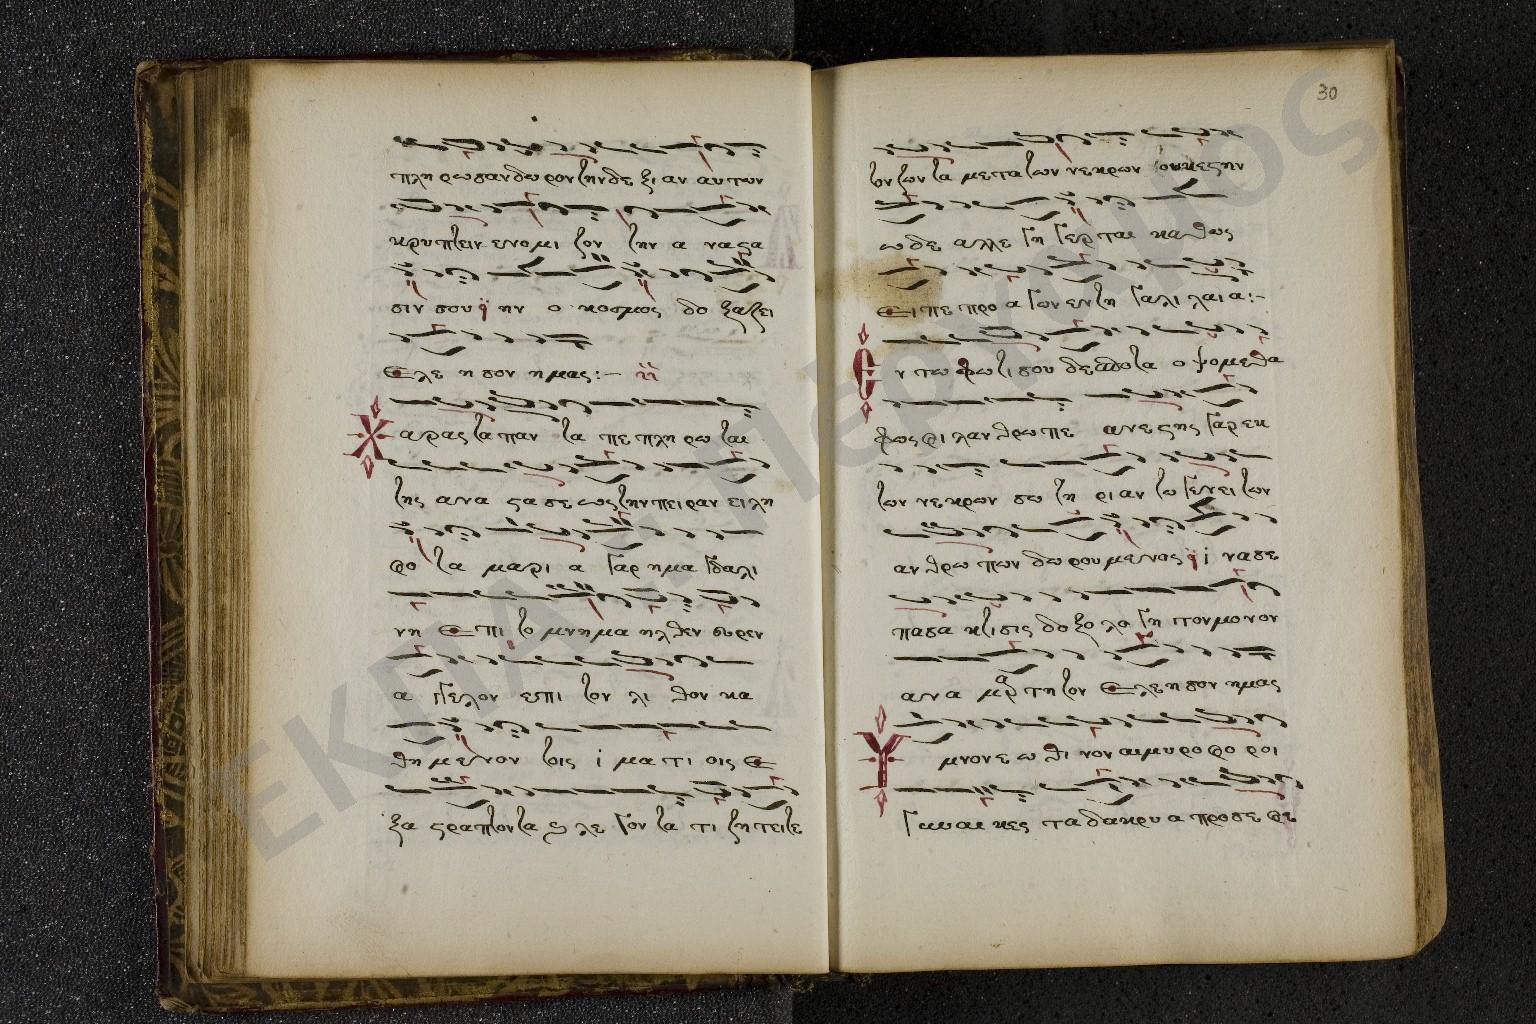 πλη ρω σαν δω ρον την δε ξι αν αυ των
κρυ πτειν ε νο μι ζον την α να στα
σιν σου ην ο κοσμος δο ξα ζει
Ελε η σον η μας :-
Χ αρας τα παν τα πε πλη ρω ται
της α να στα σε ως την πει ραν ει λη
φο τα μα ρι α γαρ η μα γδα λι
νη Ε πι το μνη μα ηλ θεν ευ ρεν
α γγελον ε πι τον λι θον κα
θη με νον τοις ι μα τι οις ε
ξα στρα πτον τα λε γον τα τι ζη τει τε
τον ζων τα με τα των νε κρων ουκ εστιν
ω δε αλλ ε γη γερ ται κα θως
Ει πε προ α γων εν τη γα λι λαι α :-
Ε ν τω φω τι σου δεσποτα ο ψο με θα
φως φι λαν θρω πε α νε στης γαρ εκ
των νε κρων σω τη ρι αν τω γε νει των
αν θρω πων δω ρου με νος ι να σε
πασα κτι σις δο ξο λο γη τον μο νον
α να μαρ τη τον Ελε η σον η μας
Υ μνον ε ω θι νον αι μυ ρο φο ροι
γυ ναι κες τα δα κρυ α προ σε φε
30
ΕΚΠΑ - Πέργαμος